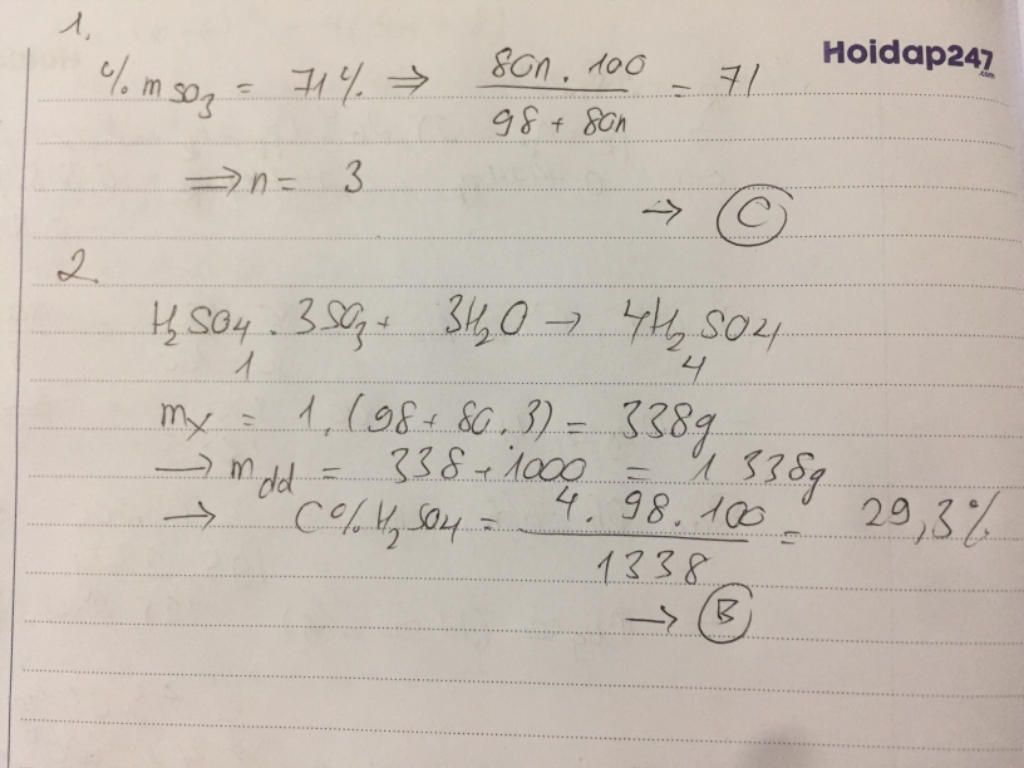 1.
Hoidap247.com
% mSO3 = 71% ⇒ 80n . 100 / 98 + 80n = 71
⇒ n = 3
→ C
2.
H2SO4 . 3SO3 + 3H2O → 4H2SO4
1 4
mx = 1. (98 + 80.3) = 338g
→ mdd = 338 + 1000 = 1338g
→ C% H2SO4 = 4. 98. 100 / 1338 = 29,3%
→ B